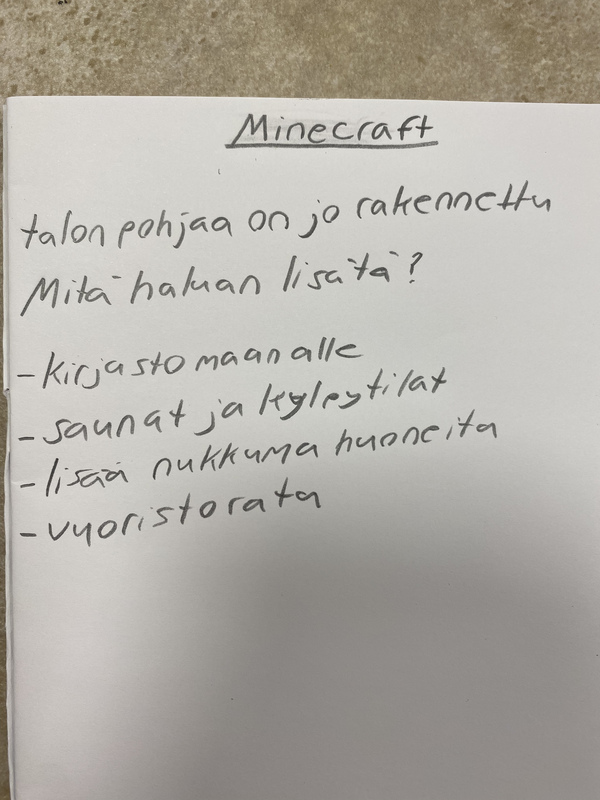 Minecraft
talon pohjaa on jo rakennettu
Mitä haluan lisätä?
- kirjasto maan alle
- saunat ja kylpytilat
- lisää nukkuma huoneita
- vuoristorata